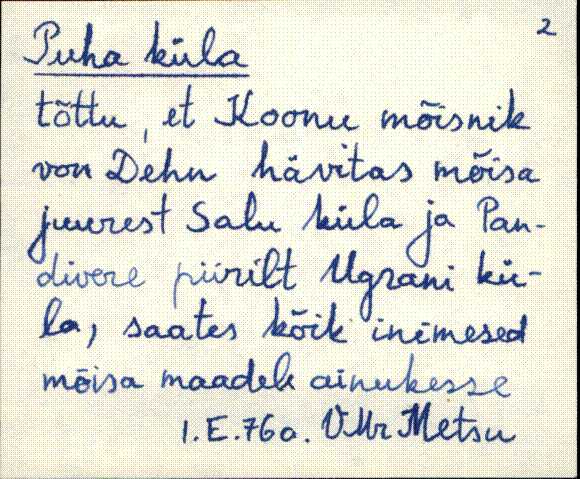 2
Puha küla
tõttu, et Koonu mõisnik
von Dehn hävitas mõisa
juurest Salu küla ja Pan-
divere piirilt Ugrani kü-
la, saates kõik inimesed
mõisa maadele ainukesse
1.E.76a. VMr Metsu